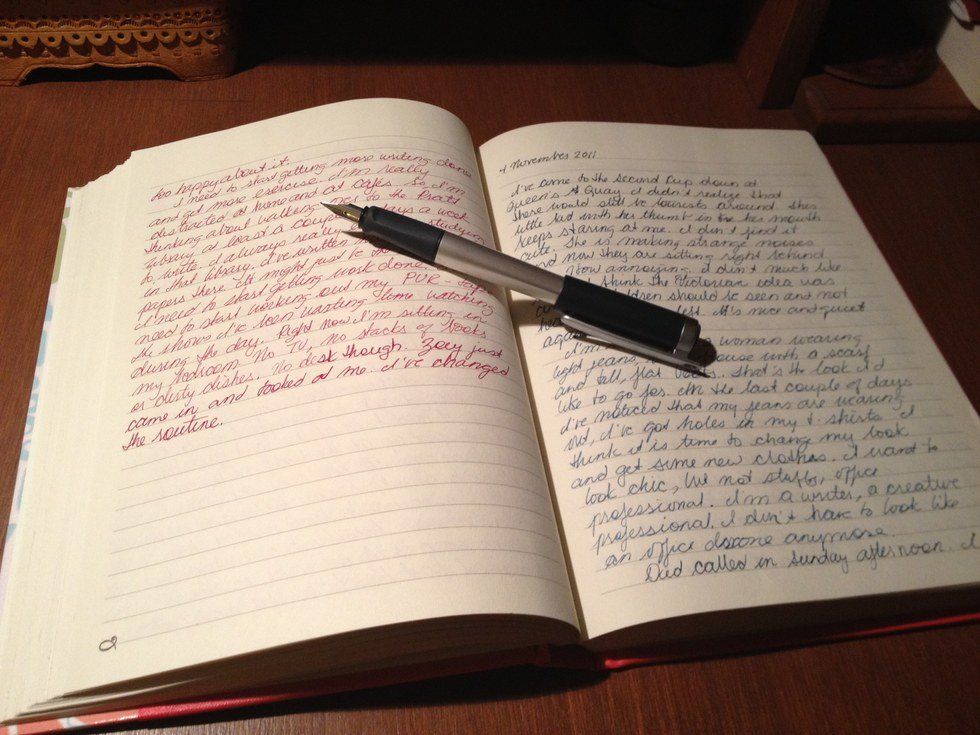 too happy about it.
I need to start getting more writing done
and get more exercise. I'm really
distracted at home and at cafés. So I'm
thinking about walking to the Pratt
library at least a couple days a week
to write. I always really studying
in that library. I've written
papers there. It might just be
I need to start getting work done.
need to start working out my PVR
the shows I've been wasting time watching
during the day. Right now I'm sitting in
my bedroom. No TV, no stacks of books
or dirty dishes. No desk though. Zoey just
came in and looked at me. I've changed
the routine.
4 November 2011
I've come to the Second Cup down at
Queen's Quay. I didn't realize that
there would still be tourists around. This
little kid with her thumb in her mouth
keeps staring at me. I don't find it
cute. She is making strange noises
and now they are sitting right behind
How annoying. I don't much like
think the Victorian idea was
children should be seen and not
left. It's nice and quiet
again
I'm woman wearing
light jeans with a scarf
and tall, flat boots. That's the look I'd
like to go for. In the last couple of days
I've noticed that my jeans are wearing
out, I've got holes in my t-shirts. I
think it is time to change my look
and get some new clothes. I want to
look chic, but not stuffy, office
professional. I'm a writer, a creative
professional. I don't have to look like
an office drone anymore.
Dad called in Sunday afternoon. I